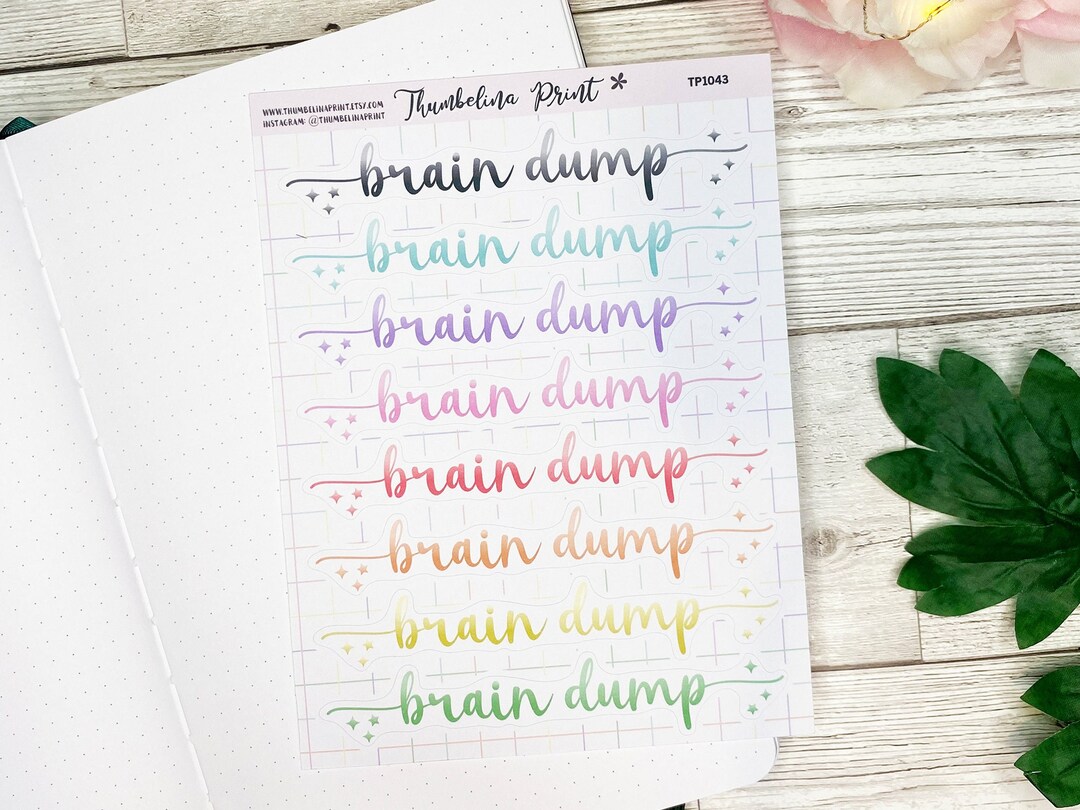 WWW.THUMBELINAPRINT.ETSY.COM
INSTAGRAM: @THUMBELINAPRINT
Thumbelina Print *
TP1043
brain dump
brain dump
brain dump
brain dump
brain dump
brain dump
brain dump
brain dump